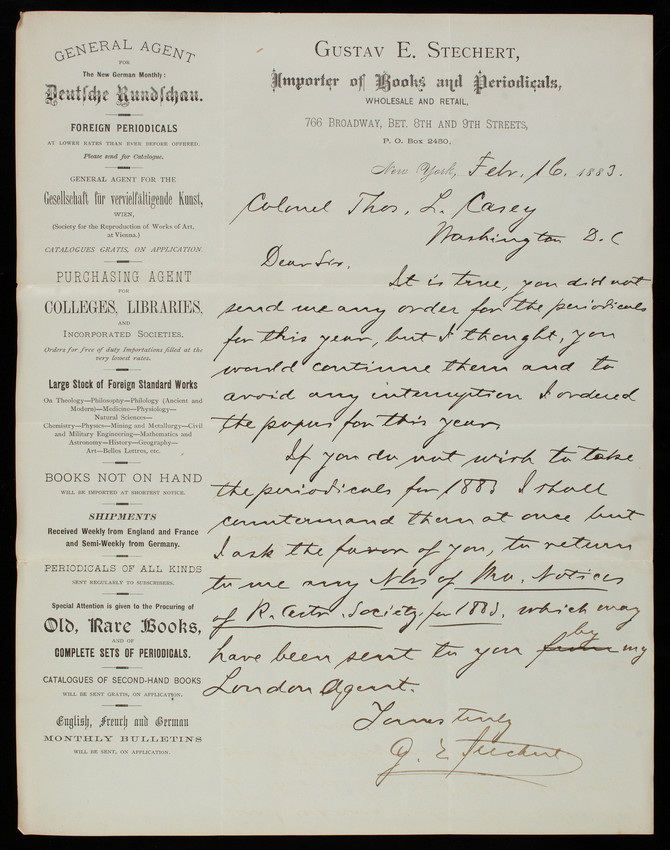 GENERAL AGENT
FOR
The New German Monthly:
Deutsche Rundschau.
FOREIGN PERIODICALS
AT LOWER RATES THAN EVER BEFORE OFFERED.
Please send for Catalogue.
GENERAL AGENT FOR THE
Gesellschaft für vervielfältigende Kunst,
WIEN,
(Society for the Reproduction of Works of Art,
at Vienna.)
CATALOGUES GRATIS, ON APPLICATION.
PURCHASING AGENT
FOR
COLLEGES, LIBRARIES,
AND
INCORPORATED SOCIETIES.
Orders for free of duty Importations filled at the
very lowest rates.
Large Stock of Foreign Standard Works
On Theology—Philosophy—Philology (Ancient and
Modern)—Medicine—Physiology—
Natural Sciences—
Chemistry—Physics—Mining and Metallurgy—Civil
and Military Engineering—Mathematics and
Astronomy—History—Geography—
Art—Belles Lettres, etc.
BOOKS NOT ON HAND
WILL BE IMPORTED AT SHORTEST NOTICE.
SHIPMENTS
Received Weekly from England and France
and Semi-Weekly from Germany.
PERIODICALS OF ALL KINDS
SENT REGULARLY TO SUBSCRIBERS.
Special Attention is given to the Procuring of
Old, Rare Books,
AND OF
COMPLETE SETS OF PERIODICALS.
CATALOGUES OF SECOND-HAND BOOKS
WILL BE SENT GRATIS, ON APPLICATION.
English, French and German
MONTHLY BULLETINS
WILL BE SENT, ON APPLICATION.
GUSTAV E. STECHERT,
Importer of Books and Periodicals,
WHOLESALE AND RETAIL,
766 BROADWAY, BET. 8TH AND 9TH STREETS,
P. O. Box 2450.
New York, Febr. 16. 1883.
Colonel Thos. L. Casey
Washington D.C
Dear Sir.
It is true, you did not
send me any order for the periodicals
for this year, but I thought, you
would continue them and to
avoid any interruption I ordered
the papers for this year.
If you do not wish to take
the periodicals for 1883 I shall
countermand them at once but
I ask the favor of you, to return
to me any Nbs of Mo. Notices
of R. Astr. Society for 1883. which may
have been sent to you from by my
London Agent.
Yours truly
G. E. Stechert